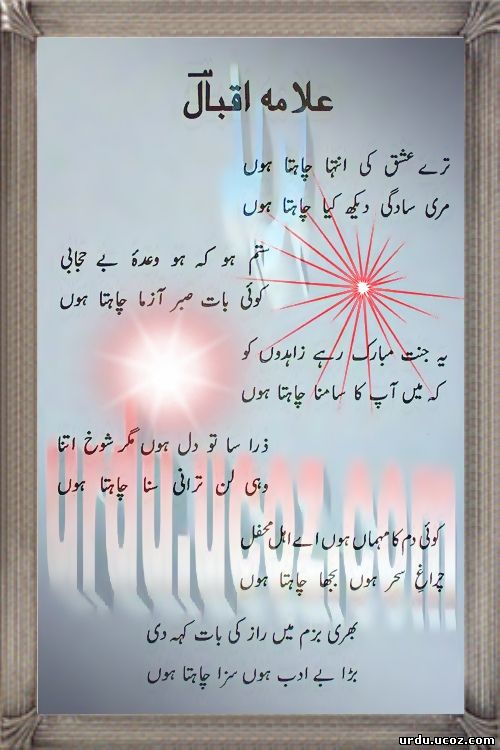 علامہ اقبالؔ
ترے عشق کی انتہا چاہتا ہوں
مری سادگی دیکھ کیا چاہتا ہوں
ستم ہو کہ ہو وعدۂ بے حجابی
کوئی بات صبر آزما چاہتا ہوں
یہ جنت مبارک رہے زاہدوں کو
کہ میں آپ کا سامنا چاہتا ہوں
ذرا سا تو دل ہوں مگر شوخ اتنا
وہی لن ترانی سنا چاہتا ہوں
کوئی دم کا مہماں ہوں اے اہل محفل
چراغِ سحر ہوں بجھا چاہتا ہوں
بھری بزم میں راز کی بات کہہ دی
بڑا بے ادب ہوں سزا چاہتا ہوں
urdu.ucoz.com
urdu.ucoz.com